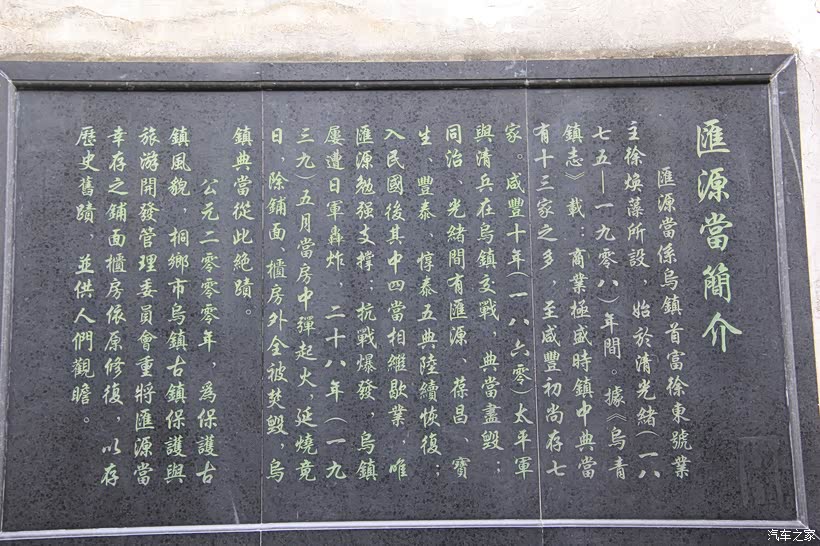 匯源當簡介
匯源當係烏鎮首富徐東號業
主徐煥藻所設，始於清光緒(一八
七五—一九零八)年間。據《烏青
鎮志》載：商業極盛時鎮中典當
有十三家之多，至咸豐初尚存七
家。咸豐十年(一八六零)太平軍
與清兵在烏鎮交戰，典當盡毀；
同治、光緒間有匯源、葆昌、寶
生、豐泰、惇泰五典陸續恢復；
入民國後其中四當相繼歇業，唯
匯源勉强支撐；抗戰爆發，烏鎮
屢遭日軍轟炸，二十八年(一九
三九)五月當房中彈起火，延燒竟
日，除鋪面、櫃房外全被焚毀，烏
鎮典當從此絕蹟。
公元二零零零年，爲保護古
鎮風貌，桐鄉市烏鎮古鎮保護與
旅游開發管理委員會重將匯源當
幸存之鋪面櫃房依原修復，以存
歷史舊蹟，並供人們觀瞻。
汽车之家